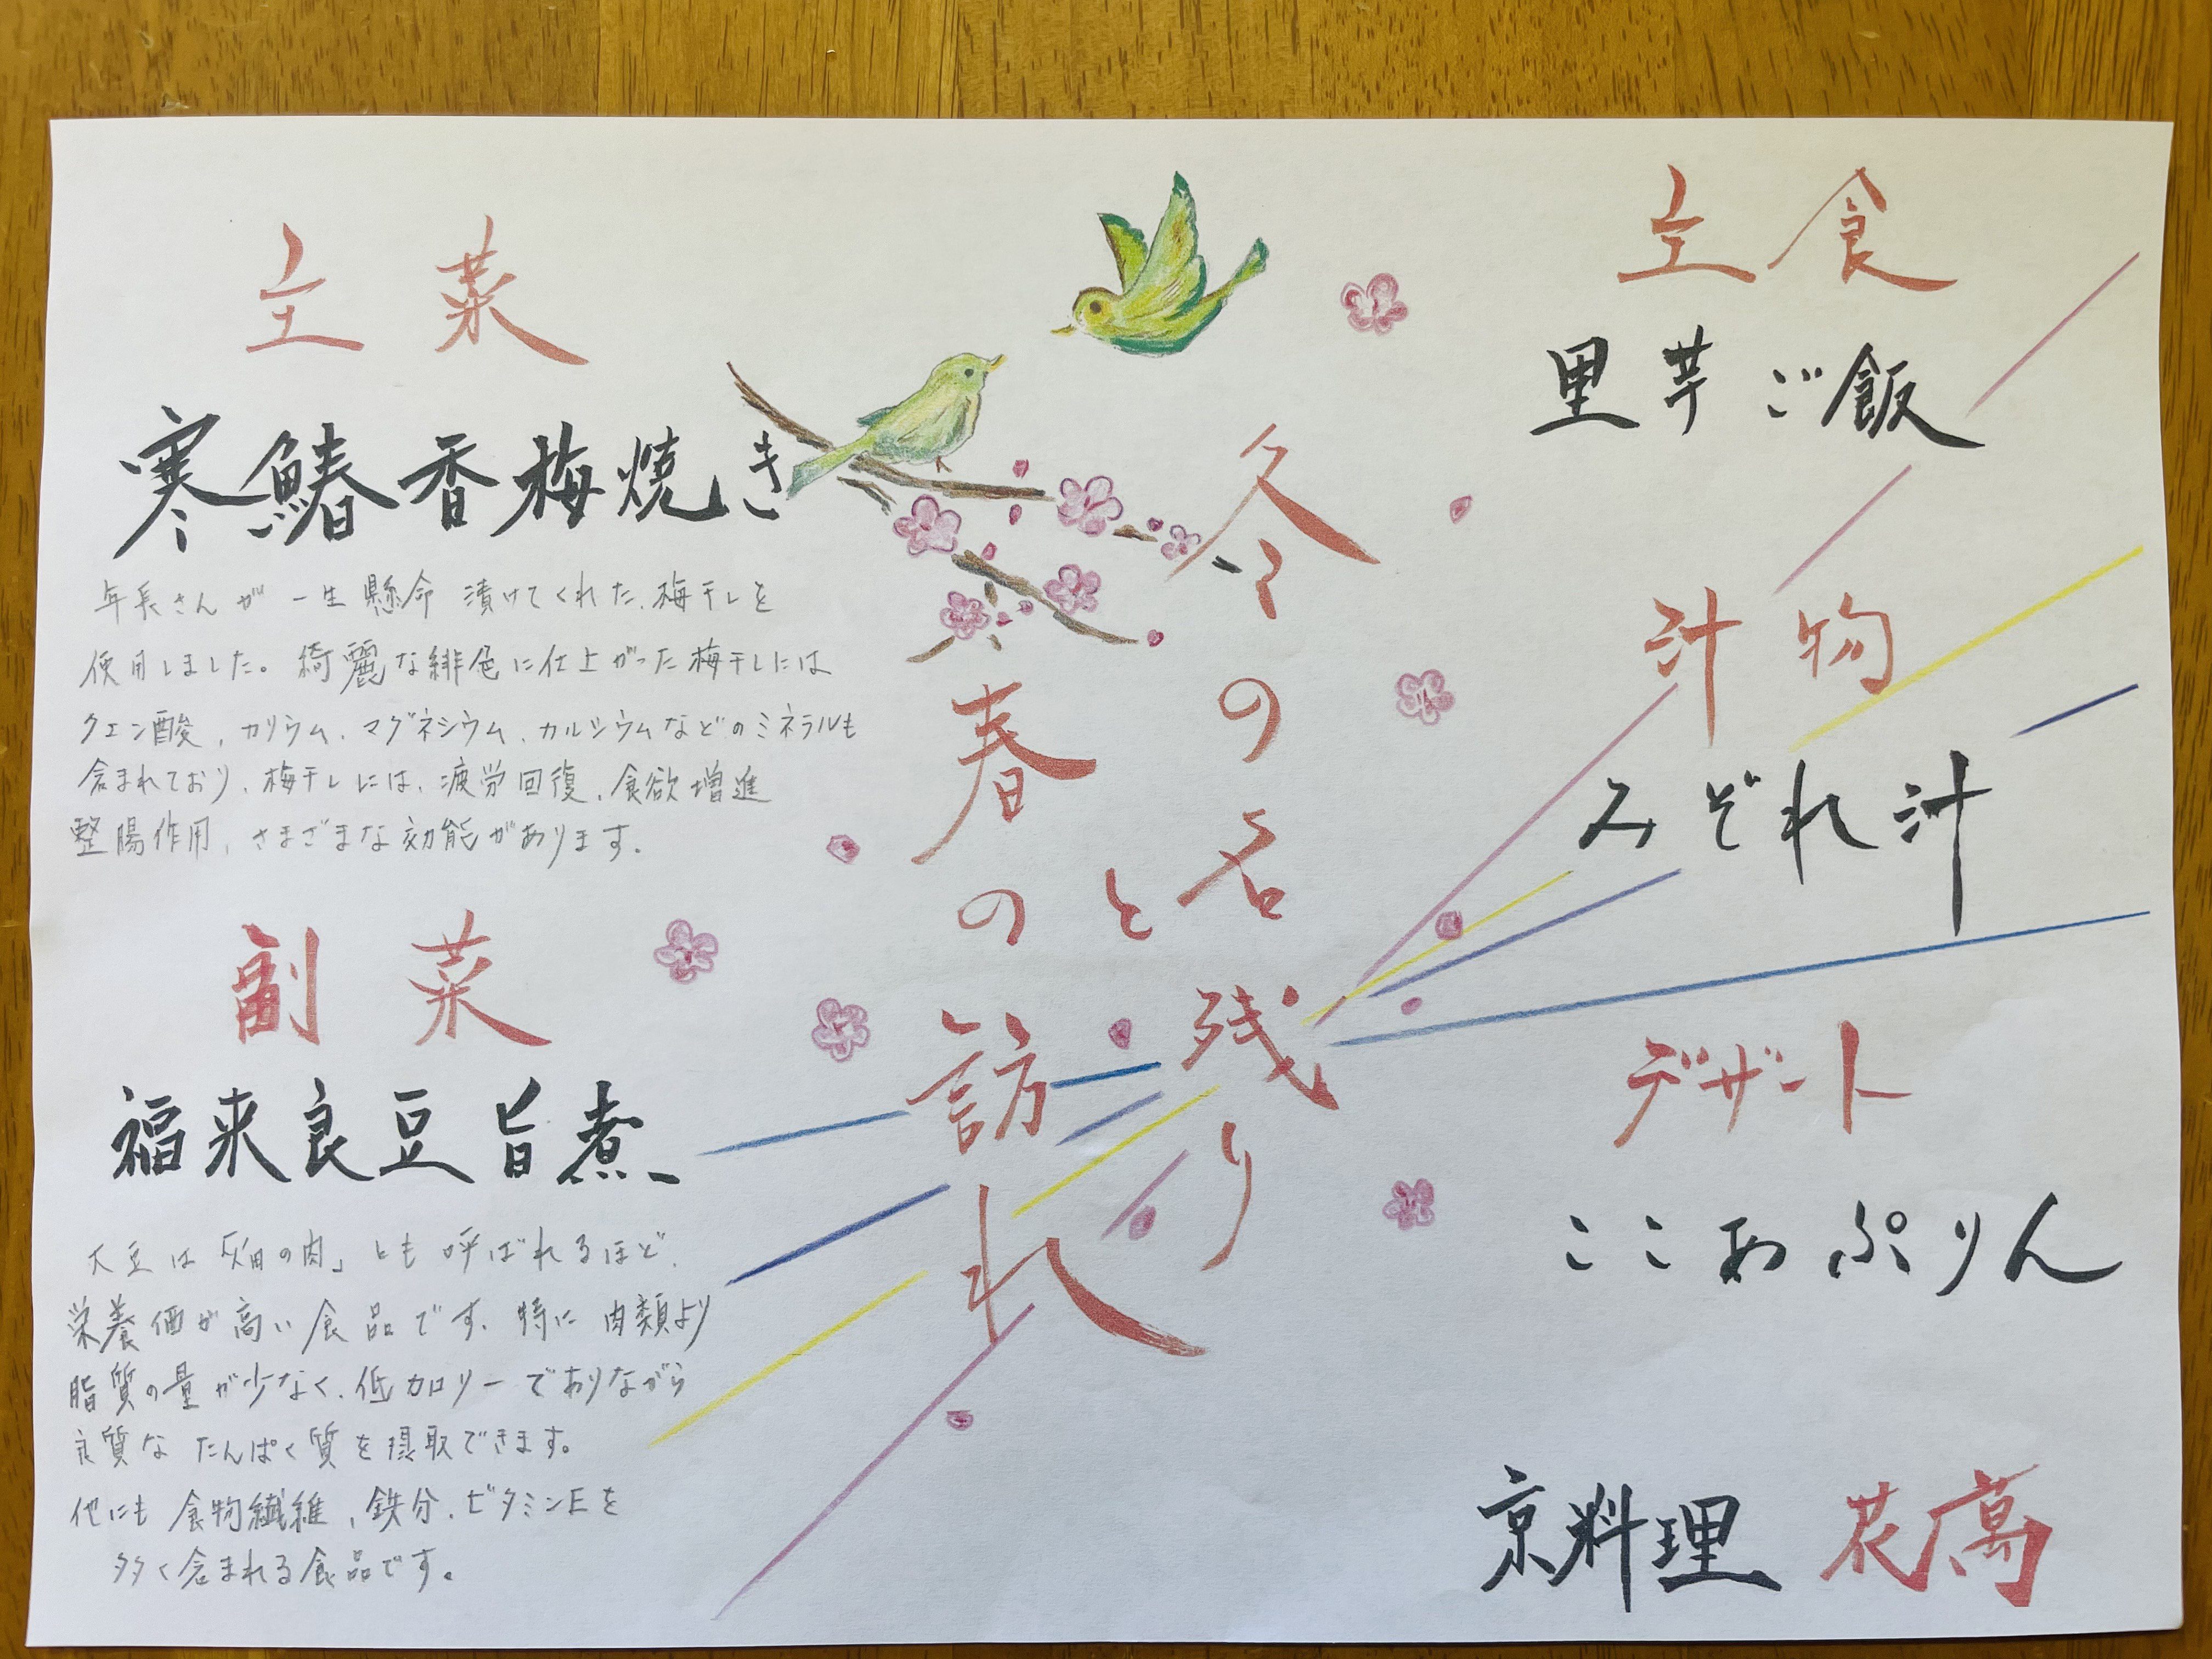 主菜
寒鰆香梅焼き
年長さんが一生懸命漬けてくれた、梅干しを
使用しました。綺麗な緋色に仕上がった梅干しには
クエン酸、カリウム、マグネシウム、カルシウムなどのミネラルも
含まれており、梅干しには、疲労回復、食欲増進
整腸作用、さまざまな効能があります。
副菜
福来良豆旨煮
大豆は「畑の肉」とも呼ばれるほど、
栄養価が高い食品です、特に肉類より
脂質の量が少なく、低カロリーでありながら
良質なたんぱく質を摂取できます。
他にも食物繊維、鉄分、ビタミンEを
多く含まれる食品です。
冬の名残り
と
春の訪れ
主食
里芋ご飯
汁物
みぞれ汁
デザート
ここあぷりん
京料理 花萬